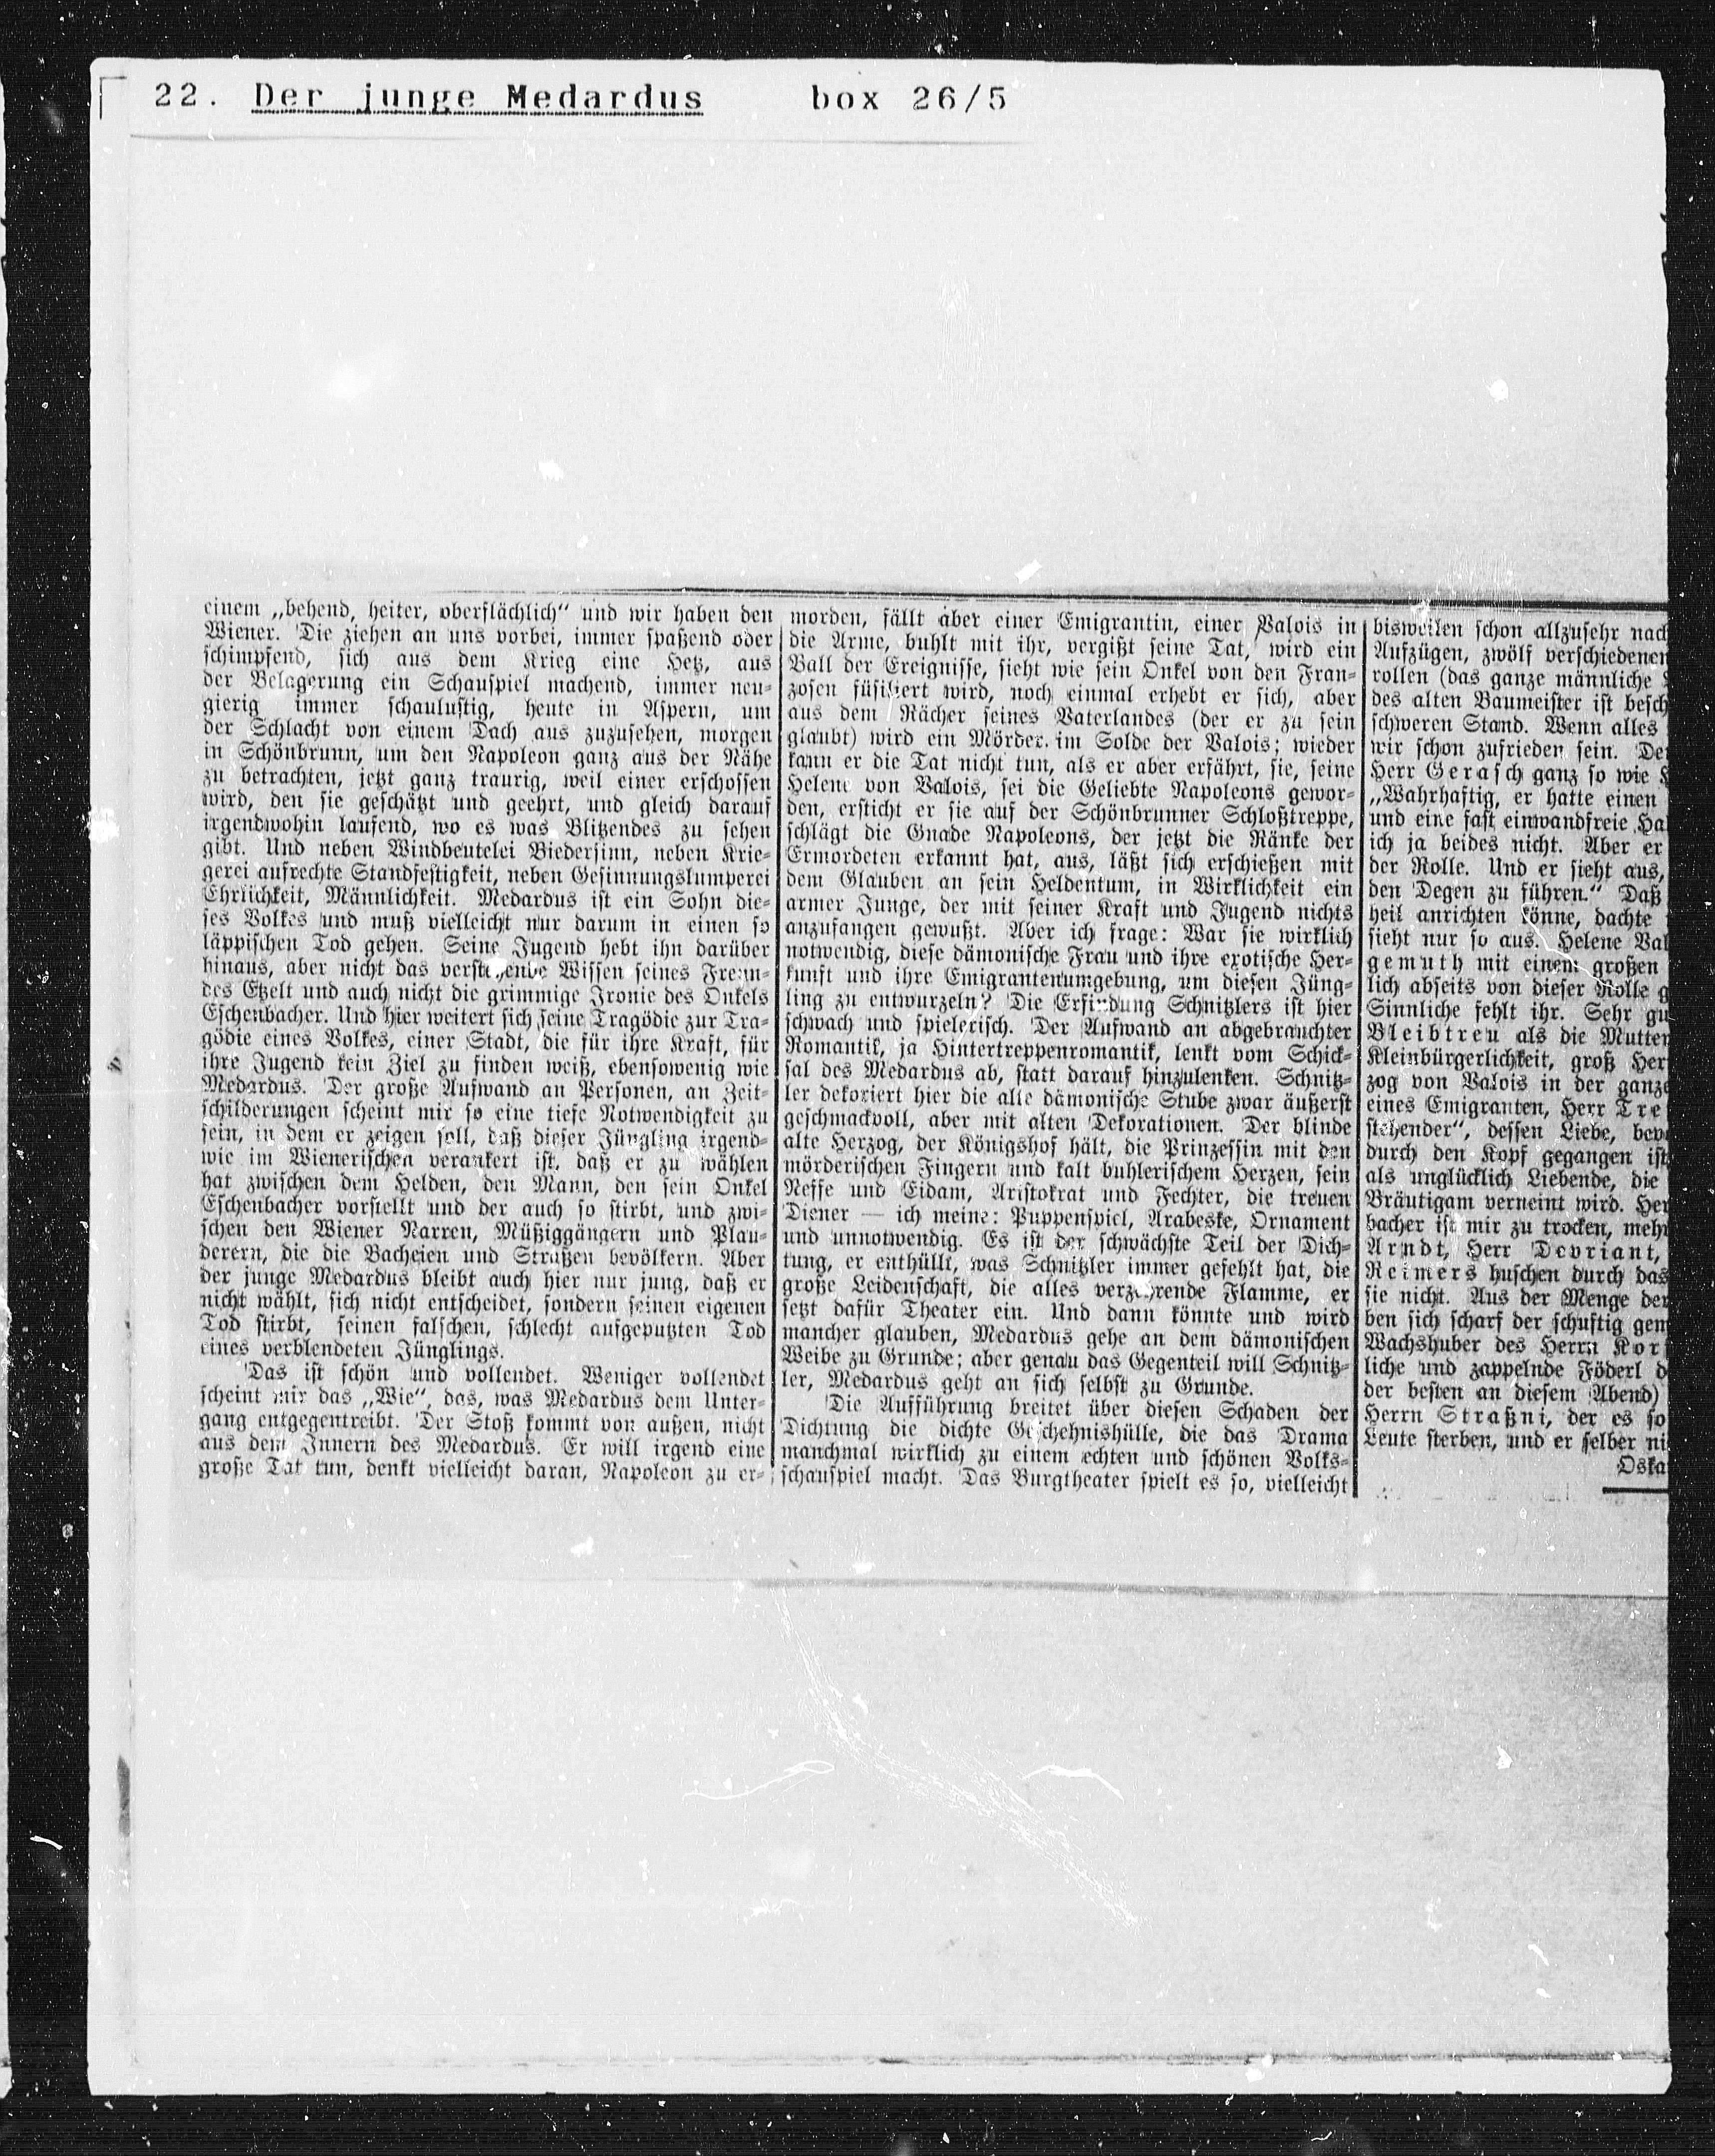 22. Der junge Medardus box 26/5
einem „behend, heiter, oberflächlich“ und wir haben den
Wiener. Die ziehen an uns vorbei, immer spaßend oder
schimpfend, sich aus dem Krieg eine Hetz, aus
der Belagerung ein Schauspiel machend, immer neu-
gierig immer schaulustig, heute in Aspern, um
der Schlacht von einem Dach aus zuzusehen, morgen
in Schönbrunn, um den Napoleon ganz aus der Nähe
zu betrachten, jetzt ganz traurig, weil einer erschossen
wird, den sie geschätzt und geehrt, und gleich darauf
irgendwohin laufend, wo es was Blitzendes zu sehen
gibt. Und neben Windbeutelei Biedersinn, neben Krie-
gerei aufrechte Standfestigkeit, neben Gesinnungslumperei
Ehrlichkeit, Männlichkeit. Medardus ist ein Sohn die-
ses Volkes und muß vielleicht nur darum in einen so
läppischen Tod gehen. Seine Jugend hebt ihn darüber
hinaus, aber nicht das verstehende Wissen seines Freun-
des Etzelt und auch nicht die grimmige Ironie des Onkels
Eschenbacher. Und hier weitert sich seine Tragödie zur Tra-
gödie eines Volkes, einer Stadt, die für ihre Kraft, für
ihre Jugend kein Ziel zu finden weiß, ebensowenig wie
Medardus. Der große Aufwand an Personen, an Zeit-
schilderungen scheint mir so eine tiefe Notwendigkeit zu
sein, in dem er zeigen soll, daß dieser Jüngling irgend-
wie im Wienerischen verankert ist, daß er zu wählen
hat zwischen dem Helden, den Mann, den sein Onkel
Eschenbacher vorstellt und der auch so stirbt, und zwi-
schen den Wiener Narren, Müßiggängern und Plau-
derern, die die Bacheien und Straßen bevölkern. Aber
der junge Medardus bleibt auch hier nur jung, daß er
nicht wählt, sich nicht entscheidet, sondern seinen eigenen
Tod stirbt, seinen falschen, schlecht aufgeputzten Tod
eines verblendeten Jünglings.
Das ist schön und vollendet. Weniger vollendet
scheint mir das „Wie“, das, was Medardus dem Unter-
gang entgegentreibt. Der Stoß kommt von außen, nicht
aus dem Innern des Medardus. Er will irgend eine
große Tat tun, denkt vielleicht daran, Napoleon zu er-
morden, fällt aber einer Emigrantin, einer Valois in
die Arme, buhlt mit ihr, vergißt seine Tat, wird ein
Ball der Ereignisse, sieht wie sein Onkel von den Fran-
zosen füsiliert wird, noch einmal erhebt er sich, aber
aus dem Rächer seines Vaterlandes (der er zu sein
glaubt) wird ein Mörder. im Solde der Valois; wieder
kann er die Tat nicht tun, als er aber erfährt, sie, seine
Helene von Valois, sei die Geliebte Napoleons gewor-
den, ersticht er sie auf der Schönbrunner Schloßtreppe,
schlägt die Gnade Napoleons, der jetzt die Ränke der
Ermordeten erkannt hat, aus, läßt sich erschießen mit
dem Glauben an sein Heldentum, in Wirklichkeit ein
armer Junge, der mit seiner Kraft und Jugend nichts
anzufangen gewußt. Aber ich frage: War sie wirklich
notwendig, diese dämonische Frau und ihre exotische Her-
kunft und ihre Emigrantenumgebung, um diesen Jüng-
ling zu entwurzeln? Die Erfindung Schnitzlers ist hier
schwach und spielerisch. Der Aufwand an abgebrauchter
Romantik, ja Hintertreppenromantik, lenkt vom Schick-
sal des Medardus ab, statt darauf hinzulenken. Schnitz-
ler dekoriert hier die alle dämonische Stube zwar äußerst
geschmackvoll, aber mit alten Dekorationen. Der blinde
alte Herzog, der Königshof hält, die Prinzessin mit den
mörderischen Fingern und kalt buhlerischem Herzen, sein
Neffe und Eidam, Aristokrat und Fechter, die treuen
Diener — ich meine: Puppenspiel, Arabeske, Ornament
und unnotwendig. Es ist der schwächste Teil der Dich-
tung, er enthüllt, was Schnitzler immer gefehlt hat, die
große Leidenschaft, die alles verzehrende Flamme, er
setzt dafür Theater ein. Und dann könnte und wird
mancher glauben, Medardus gehe an dem dämonischen
Weibe zu Grunde; aber genau das Gegenteil will Schnitz-
ler, Medardus geht an sich selbst zu Grunde.
Die Aufführung breitet über diesen Schaden der
Dichtung die dichte Geschehnishülle, die das Drama
manchmal wirklich zu einem echten und schönen Volks-
schauspiel macht. Das Burgtheater spielt es so, vielleicht
bisweilen schon allzusehr nach
Aufzügen, zwölf verschiedenen
rollen (das ganze männliche
des alten Baumeister ist besch
schweren Stand. Wenn alles
wir schon zufrieden sein. De
Herr Gerasch ganz so wie
„Wahrhaftig, er hatte einen
und eine fast einwandfreie Ha
ich ja beides nicht. Aber er
der Rolle. Und er sieht aus,
den Degen zu führen.“ Daß
heil anrichten könne, dachte
sieht nur so aus. Helene Val
gemuth mit einem großen
lich abseits von dieser Rolle g
Sinnliche fehlt ihr. Sehr gu
Bleibtreu als die Mutter
Kleinbürgerlichkeit, groß Her
zog von Valois in der ganze
eines Emigranten, Herr Tre
stehender“, dessen Liebe, bev
durch den Kopf gegangen ist
als unglücklich Liebende, die
Bräutigam verneint wird. Her
bacher ist mir zu trocken, mehr
Arndt, Herr Devriant,
Reimers huschen durch das
sie nicht. Aus der Menge der
ben sich scharf der schuftig gem
Wachshuber des Herrn Kor
liche und zappelnde Föderl d
der besten an diesem Abend)
Herrn Straßni, der es so
Leute sterben, und er selber ni
Oska